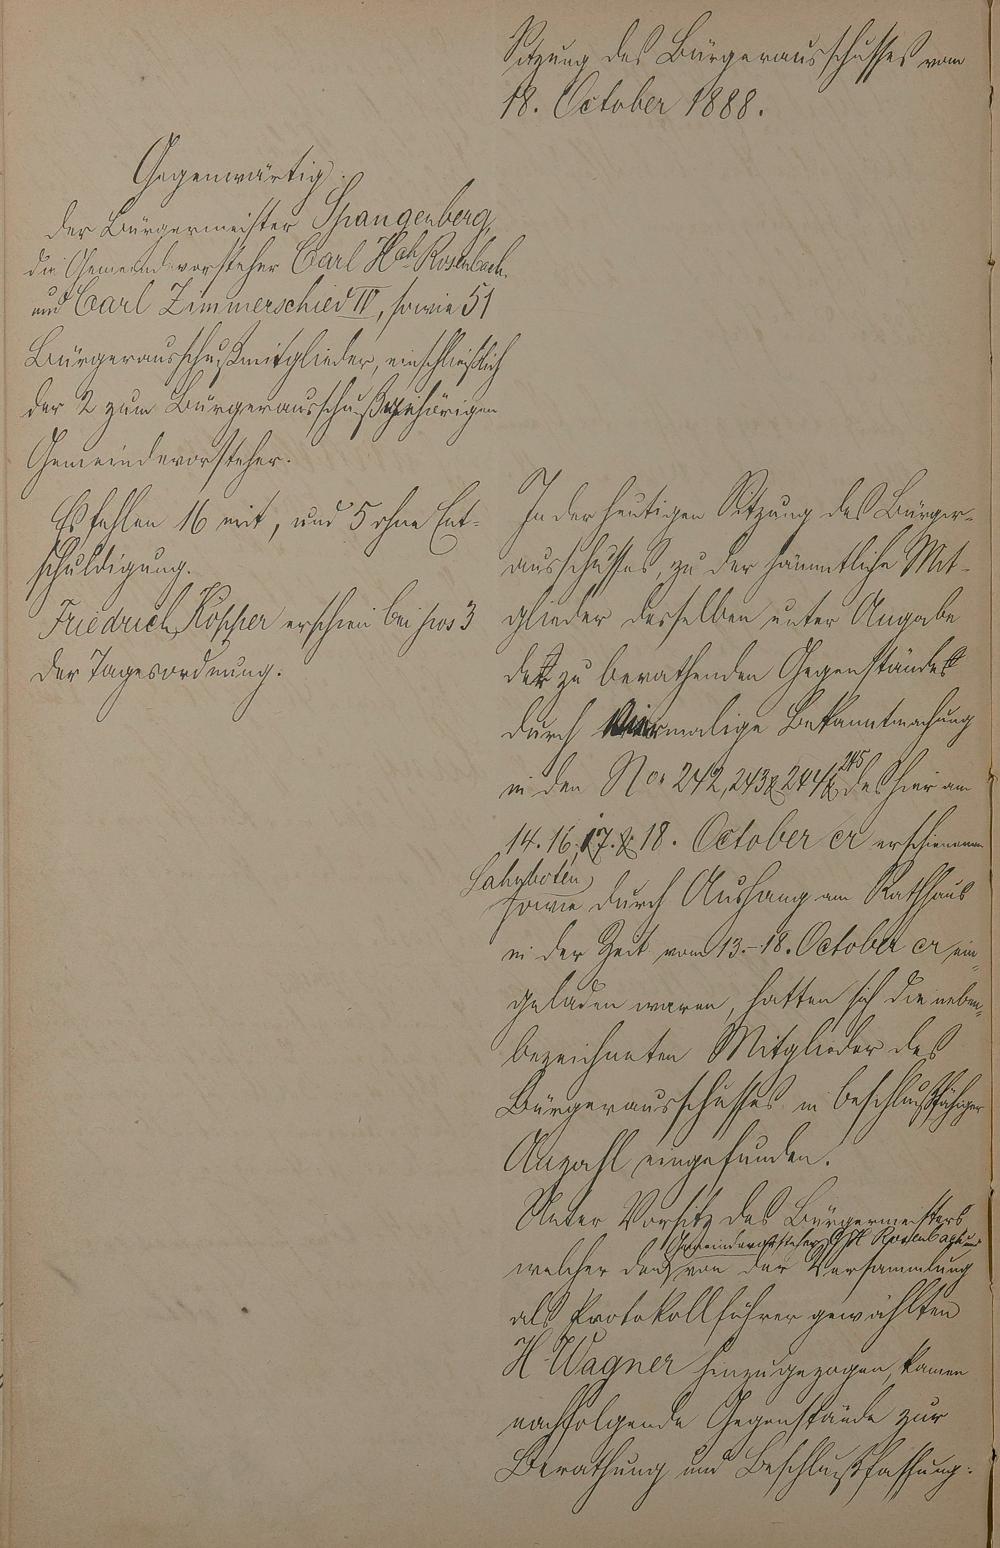 Sitzung des Bürgerausschusses vom
18. October 1888.
Gegenwärtig.
der Bürgermeister Spangenberg,
die Gemeindevorsteher Carl Hch Rosenbach
und Carl Zimmerschied IV, sowie 51
Bürgerausschußmitglieder, einschließlich
der 2 zum Bürgerausschuß gehörigen
Gemeindevorsteher.
Es fehlen 16 mit, und 5 ohne Ent-
schuldigung.
Friedrich Köpper erschien bei pos 3
der Tagesordnung.
In der heutigen Sitzung des Bürger-
ausschusses, zu der sämmtliche Mit-
glieder desselben unter Angabe
der zu berathenden Gegenstände
durch viermalige Bekanntmachung
in den No. 242, 243 & 244 & 245 des hier am
14. 16. 17. & 18. October cr erschienenen
Lahnboten
sowie durch Aushang am Rathhaus
in der Zeit vom 13.-18. October cr ein-
geladen waren, hatten sich die neben-
bezeichneten Mitglieder des
Bürgerausschusses in beschlußfähiger
Anzahl eingefunden.
Unter Vorsitz des Bürgermeisters
Gemeindevorsteher C H Rosenbach und
welcher den von der Versammlung
als Protokollführer gewählten
H. Wagner hinzugezogen, kamen
nachfolgende Gegenstände zur
Berathung und Beschlußfassung: